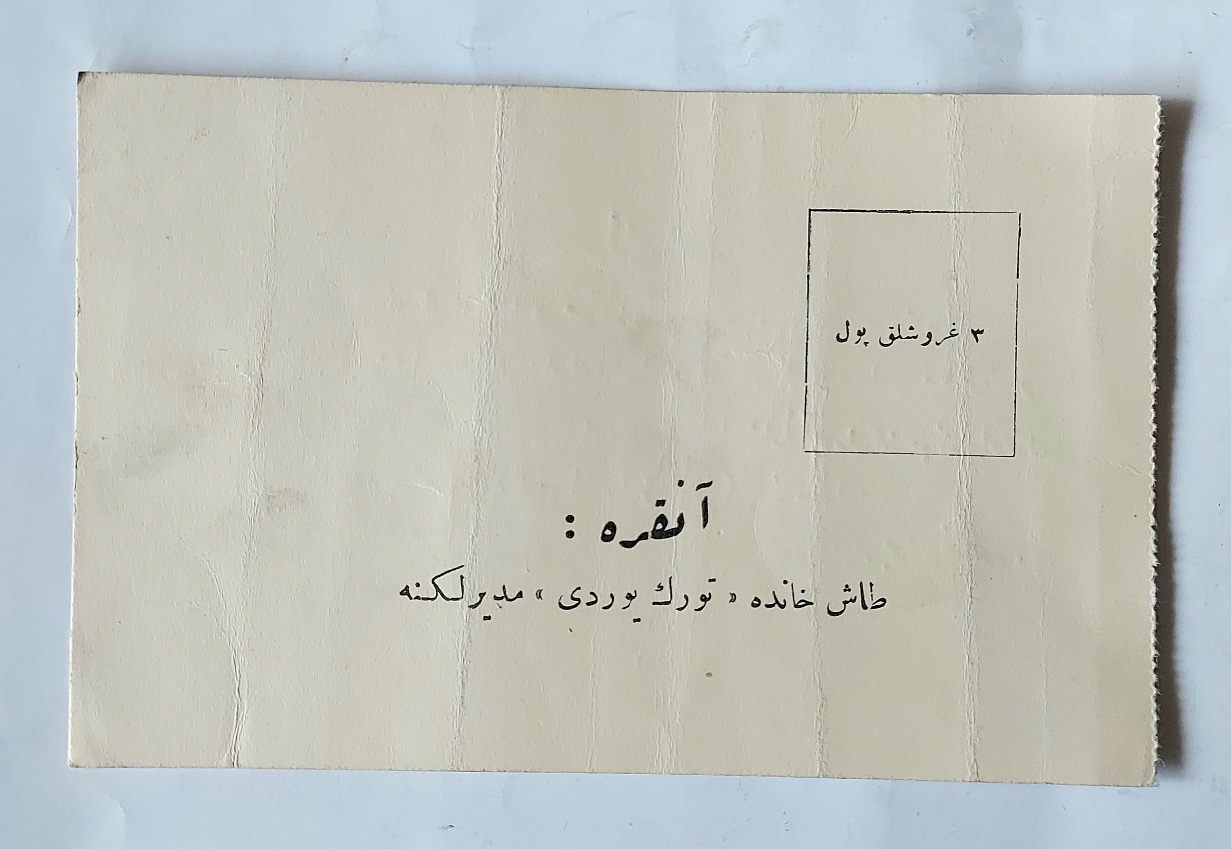 ٣ غروشلق پول
آنقره :
طاش خانده « تورك يوردی » مديرلكنه